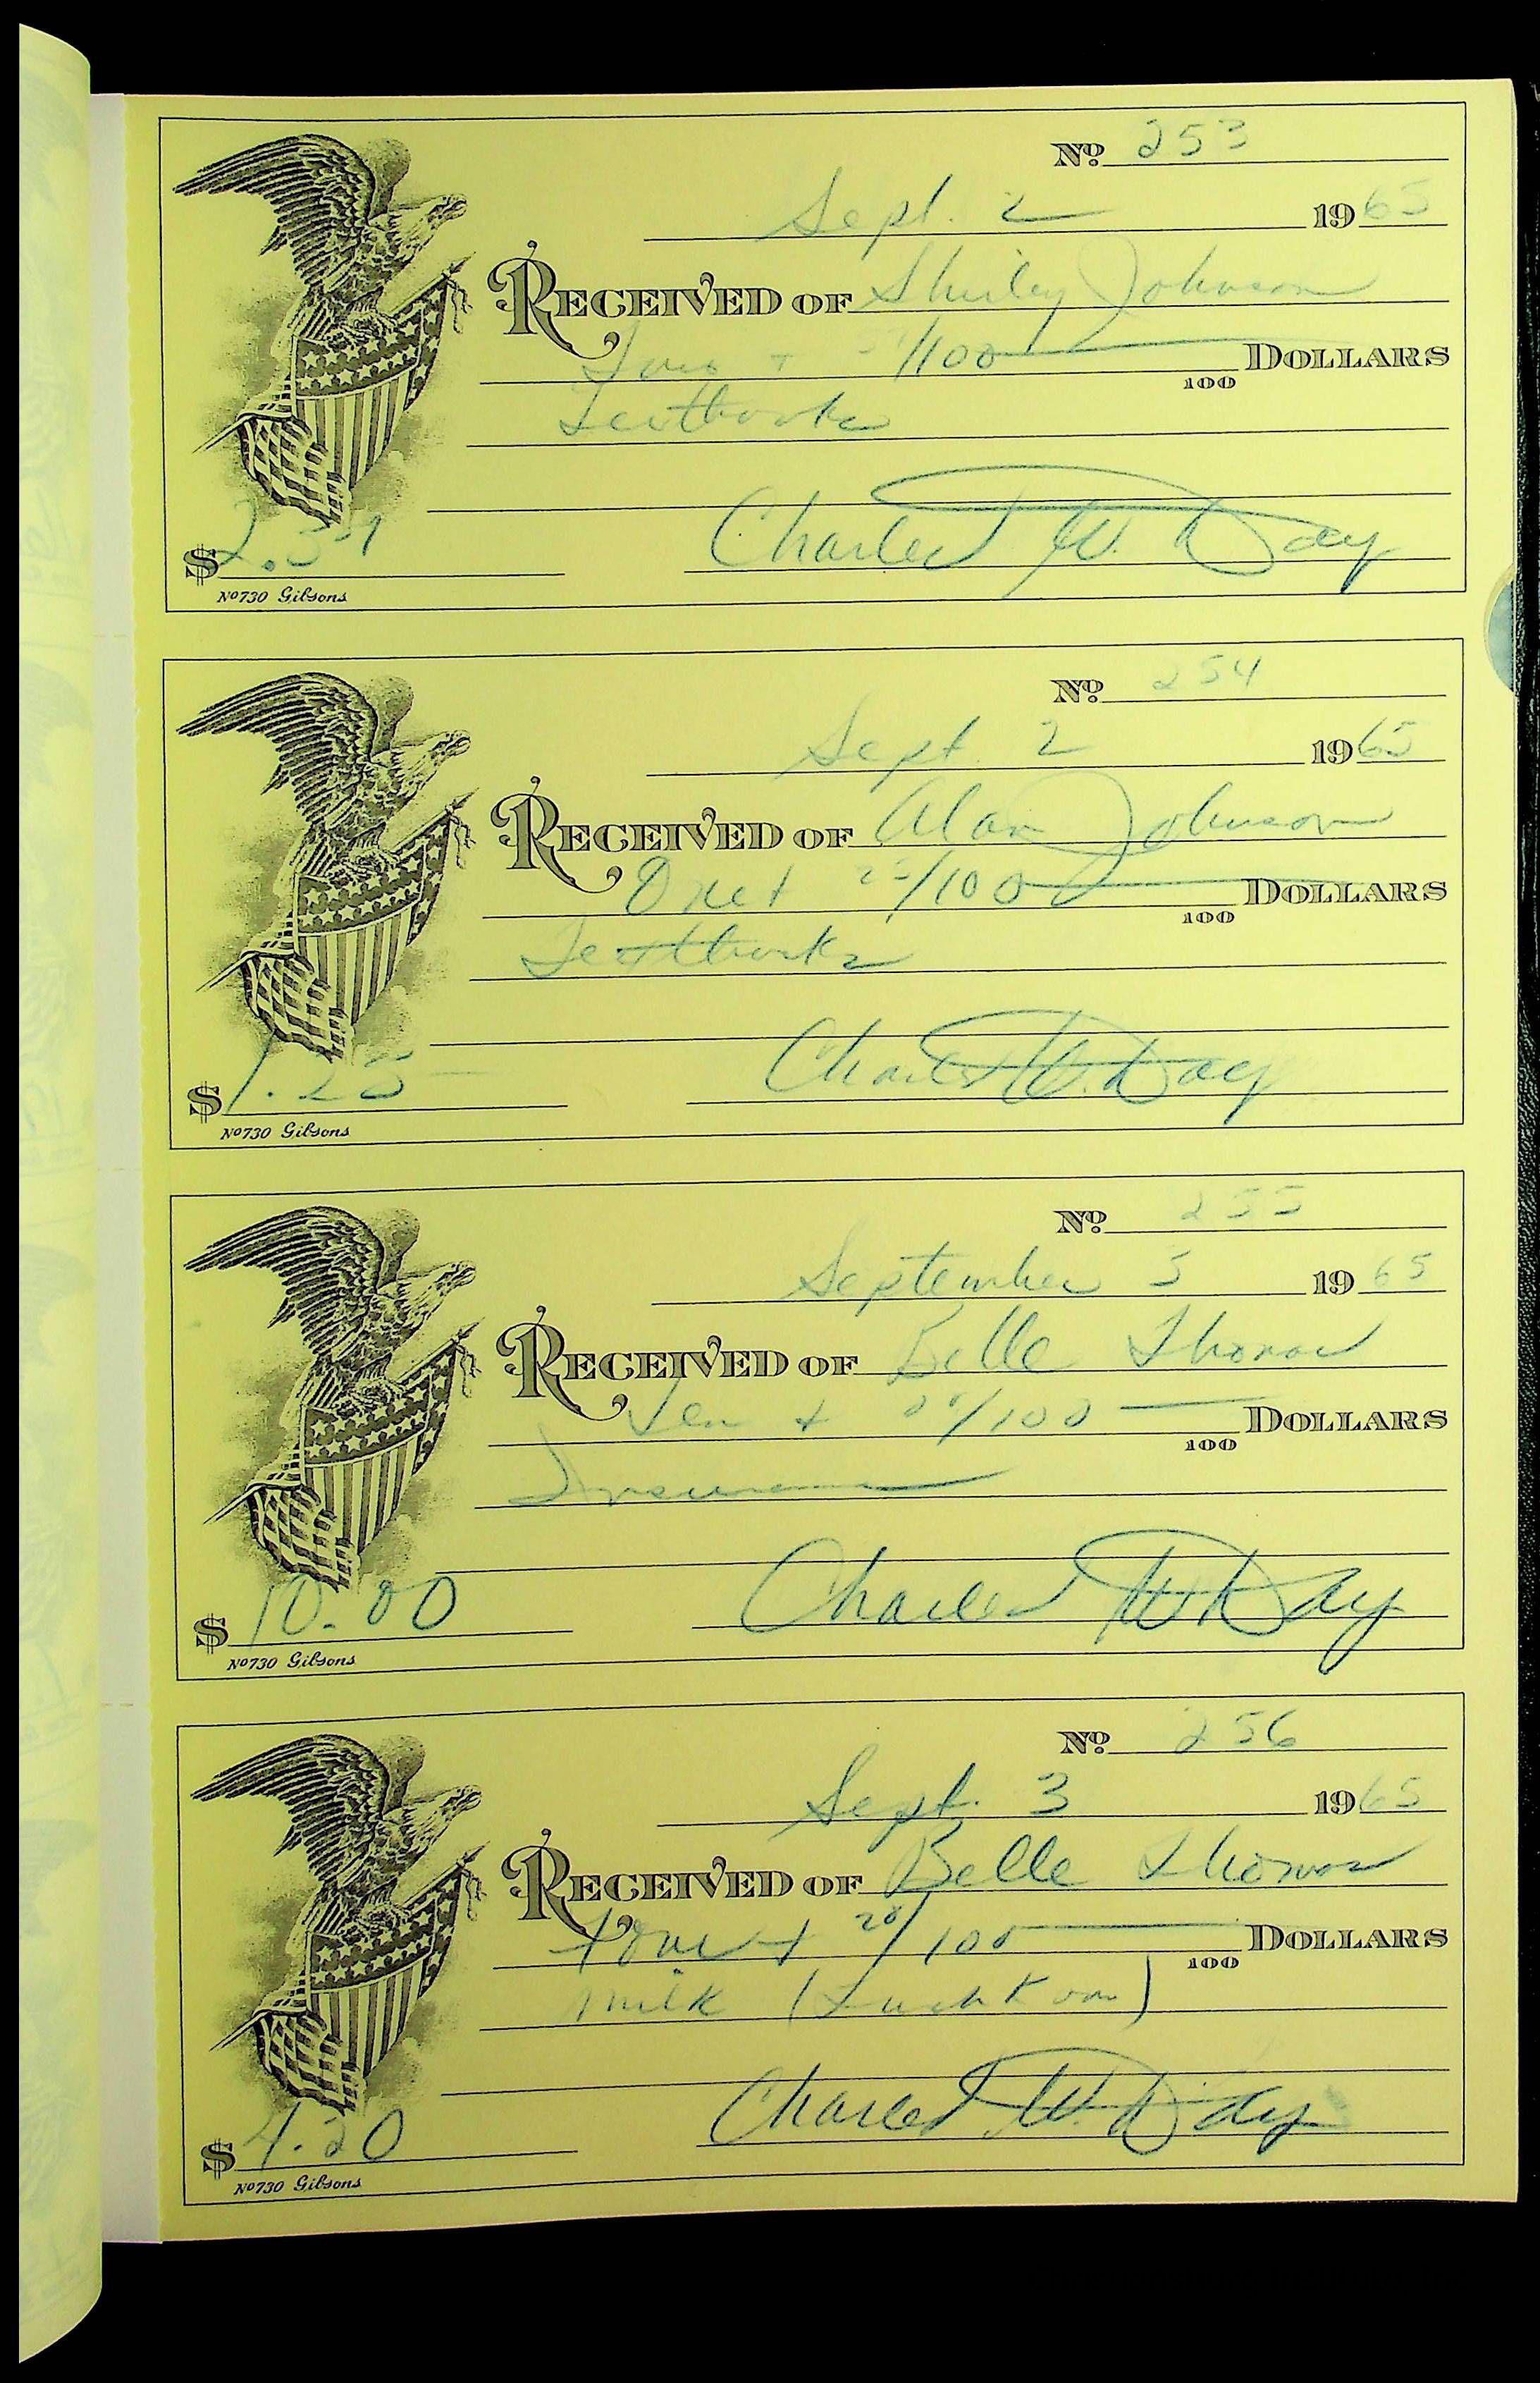 Nº 253
Sept. 2 1965
RECEIVED OF Shirley Johnson
Two + /100 DOLLARS
100
Textbooks
Charles W. Day
$2.
Nº730 Gibsons
Nº 254
Sept 2 1965
RECEIVED OF Alan Johnson
One + 25/100 DOLLARS
100
Textbooks
Charles W. Day
$1.25
Nº730 Gibsons
Nº 255
September 3 1965
RECEIVED OF Belle Thomas
Ten + 00/100 DOLLARS
100
Insurance
Charles W Day
$10.00
Nº730 Gibsons
Nº 256
Sept. 3 1965
RECEIVED OF Belle Thomas
Four + 20/100 DOLLARS
100
milk (Lunch room)
Charles W. Day
$4.20
Nº730 Gibsons